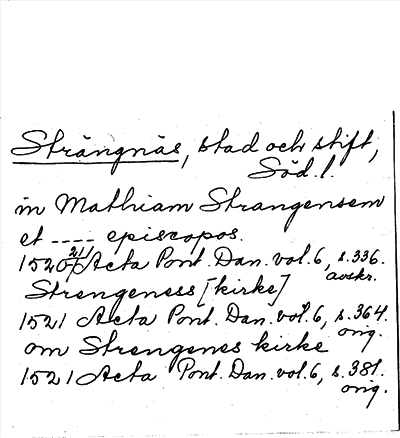 Strängnäs, stad och stift,
Söd. l.
in Mathiam Strangensem
et ---- episcopos.
1520 21/ Acta Pont. Dan. vol. 6, s. 336.
avskr.
Strengeness [kirke]
1521 Acta Pont. Dan. vol. 6, s. 364.
orig.
om Strengenes kirke
1521 Acta Pont. Dan. vol. 6, s. 381.
orig.